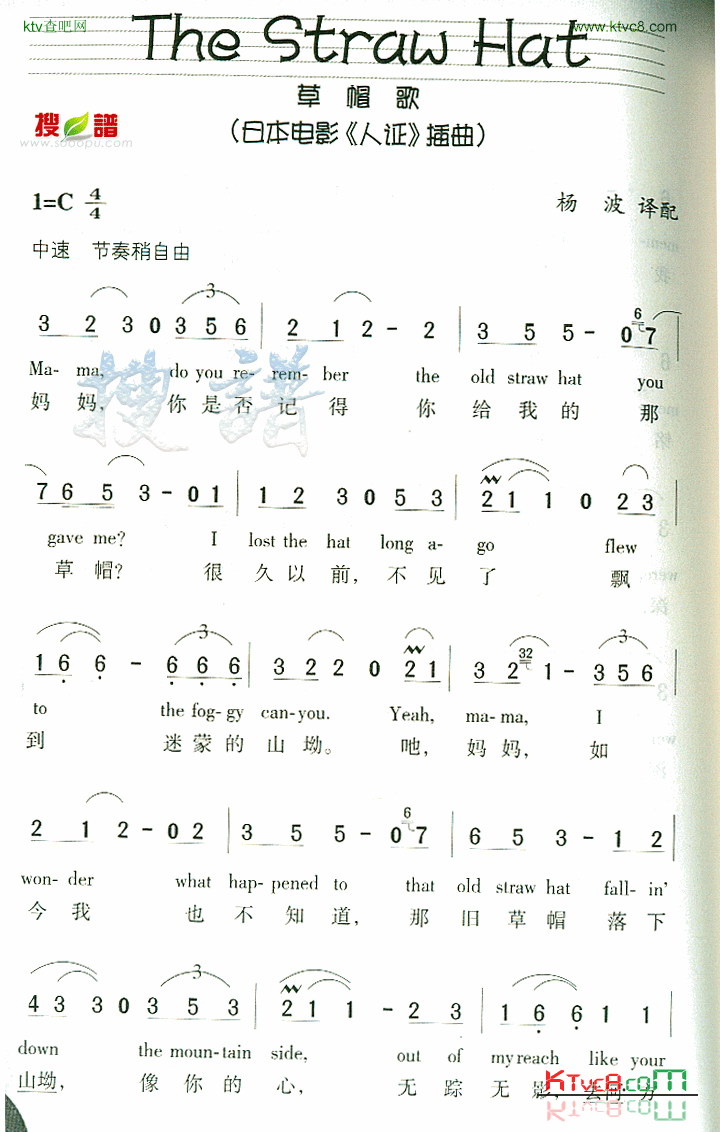 ktv查吧网 www.ktvc8.com
The Straw Hat
草帽歌
搜谱 www.sooopu.com
(日本电影《人证》插曲)
1=C 4/4 杨 波 译配
中速 节奏稍自由
3 2 3 0 3 5 6 | 2 1 2 - 2 | 3 5 5 - 0 7 |
Ma- ma, do you re- mem- ber the old straw hat you
妈 妈, 你 是 否 记 得 你 给 我 的 那
7 6 5 3 - 0 1 | 1 2 3 0 5 3 | 2 1 1 0 2 3
gave me? I lost the hat long a- go flew
草 帽? 很 久 以 前, 不 见 了 飘
1 6 6 - 6 6 6 | 3 2 2 0 2 1 | 3 2 1 - 3 5 6
to the fog- gy can-you. Yeah, ma-ma, I
到 迷 蒙 的 山 坳。 吔, 妈 妈, 如
2 1 2 - 0 2 | 3 5 5 - 0 7 | 6 5 3 - 1 2 |
won- der what hap- pened to that old straw hat fall- in'
今 我 也 不 知 道, 那 旧 草 帽 落 下
4 3 3 0 3 5 3 | 2 1 1 - 2 3 | 1 6 6 1 1
down the moun- tain side, out of my reach like your
山 坳, 像 你 的 心, 无 踪 无 影,
KTvc8.com